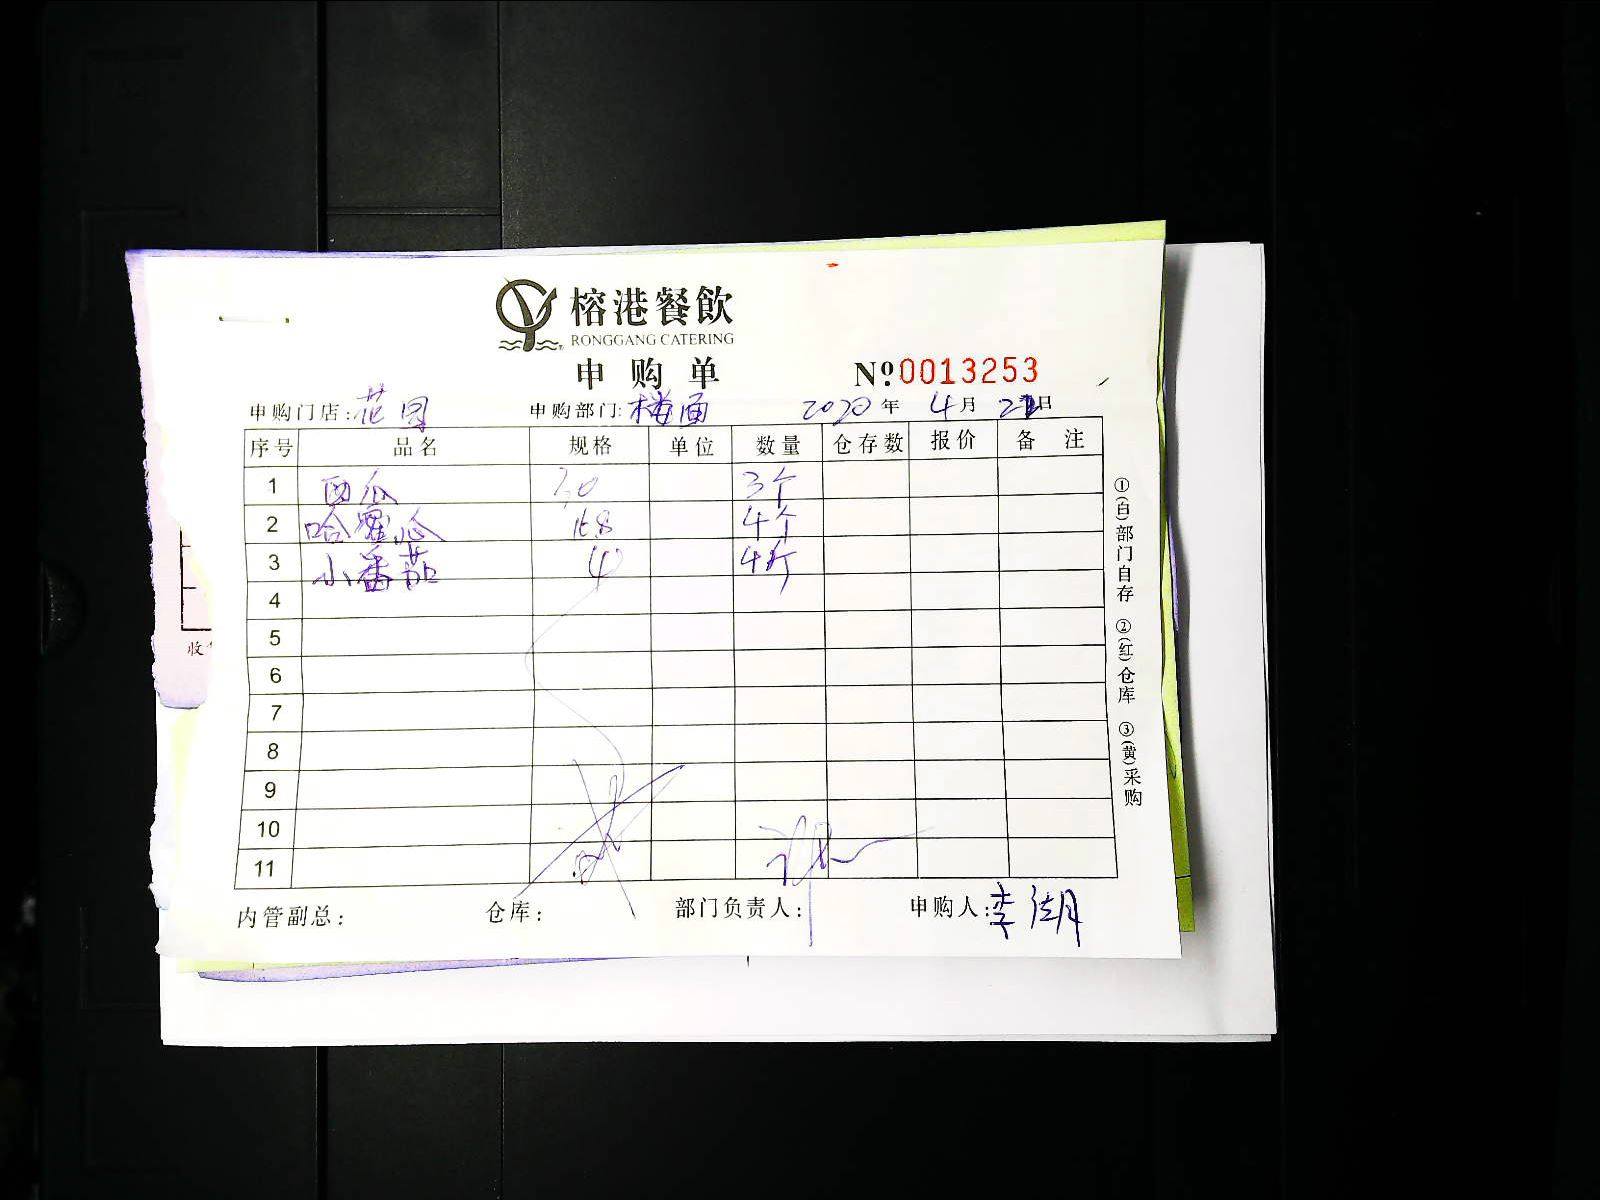 榕港餐飲
RONGGANG CATERING
申购单 Nº0013253
申购门店: 花园 申购部门: 楼面 2020年 4月 21日
序号 品名 规格 单位 数量 仓存数 报价 备注
1 西瓜 3个
2 哈蜜 4个
3 小番茄 4 4斤
4
5
6
7
8
9
10
11
内管副总: 仓库: 部门负责人: 申购人: 李湖
①(白)部门自存 ②(红)仓库 ③(黄)采购
收